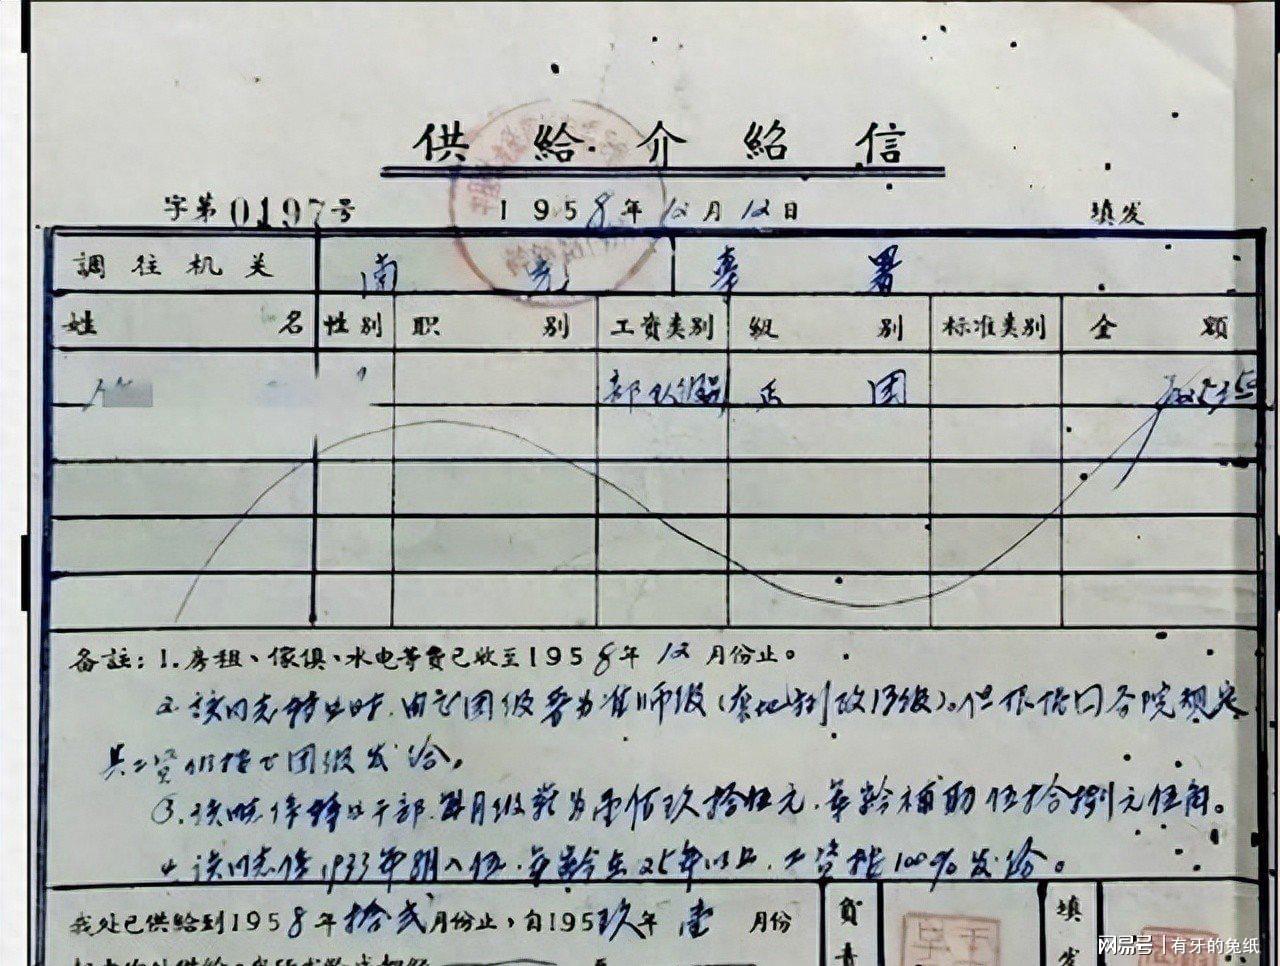 供给介绍信
字第0197号 1958年12月12日 填发
调往机关 南 充 专 署
姓名 性别 职别 工资类别 级别 标准类别 金额
正团
备註：1.房租、傢俱、水电等费已收至1958年12月份止。
2.该同志转业时，由正团级 为准师级（ 地 改13级）。但根据国务院规定
其工资仍按正团级发给。
3. 转业干部，每月级薪为壹佰玖拾伍元，军龄补助伍拾捌元伍角。
4.该同志係1933年 入伍，军龄在25年以上，工资按100%发给。
我处已供给到1958年拾贰月份止，自195玖年壹月份
负责
填发
网易号 | 有牙的兔纸